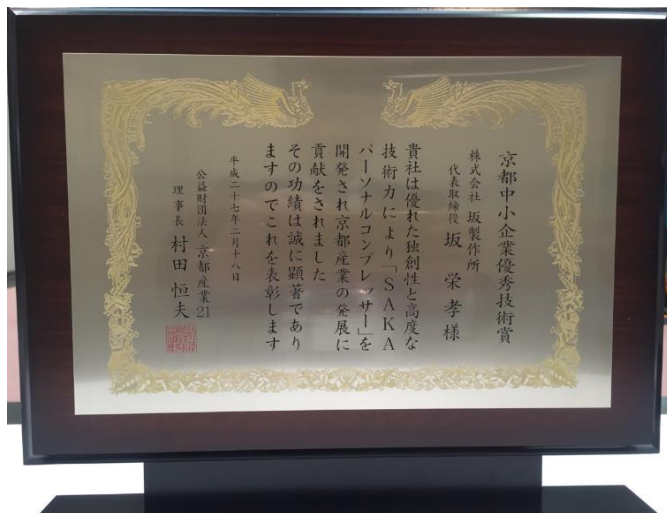 京都中小企業優秀技術賞
株式会社 坂製作所
代表取締役 坂 栄孝様
貴社は優れた独創性と高度な
技術力により「SAKA
パーソナルコンプレッサー」を
開発され京都産業の発展に
貢献をされました
その功績は誠に顕著であり
ますのでこれを表彰します
平成二十七年二月十八日
公益財団法人 京都産業21
理事長 村田恒夫